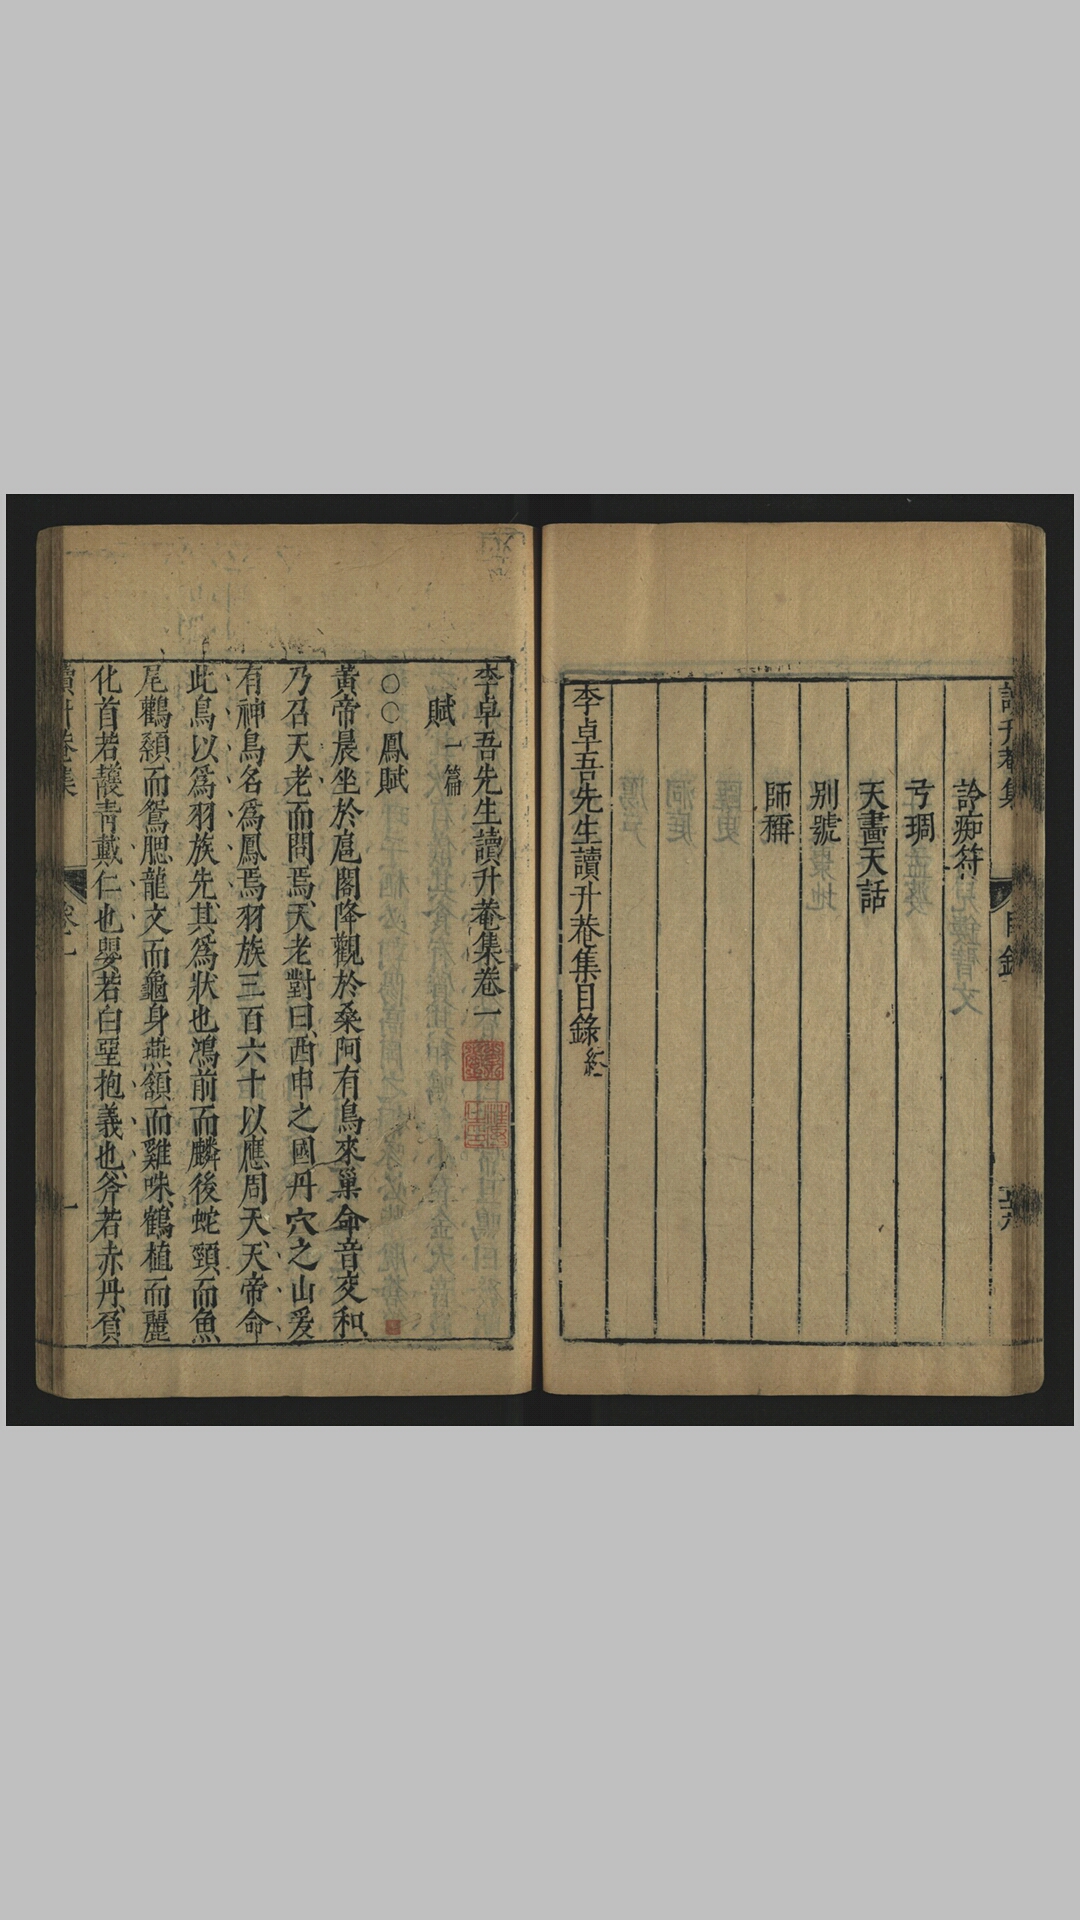 目錄
詅痴符
弓琱
天畫天話
別號
師稱
李卓吾先生讀升菴集目錄終
李卓吾先生讀升菴集卷一
賦一篇
○○鳳賦
黃帝晨坐於扈閣降觀於桑阿有鳥來巢命音交和
乃召天老而問焉天老對曰西申之國丹穴之山爰
有神鳥名為鳳焉羽族三百六十以應周天天帝命
此鳥以為羽族先其為狀也鴻前而麟後蛇頸而魚
尾鸛顙而鴛腮龍文而龜身燕頷而雞咮鶴植而麗
化首若靑戴仁也嬰若白堊抱義也斧若赤丹負
讀升菴集
卷一
一